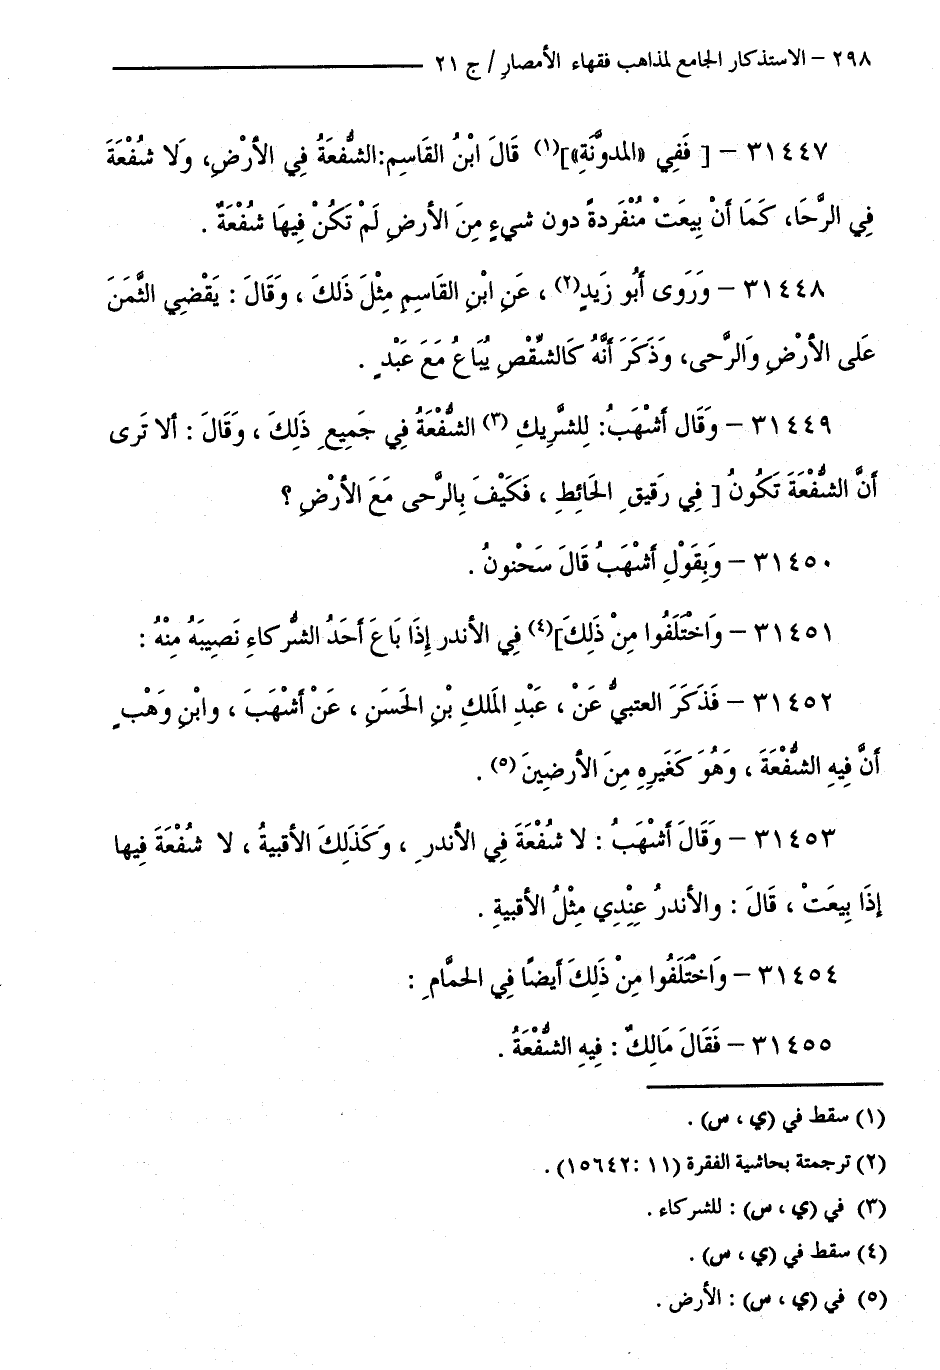 ٢٩٨ – الاستذكار الجامع لمذاهب فقهاء الأمصار / ج ٢١
٣١٤٤٧ – [ فَفِي «المدوَّنَةِ»](١) قَالَ ابْنُ القَاسِمِ:الشُّفعَةُ فِي الأرْضِ، وَلا شُفْعَةَ
فِي الرَّحَا، كَمَا أَنْ بِيعَتْ مُنْفَردةً دون شيءٍ مِنَ الأرضِ لَمْ تَكُنْ فِيهَا شُفْعَةٌ .
٣١٤٤٨ – وَرَوى أَبُو زَيدٍ(٢) ، عَنِ ابْنِ القَاسِمِ مِثْلَ ذَلكَ ، وَقَالَ : يَقْضِي الثَّمَنَ
عَلى الأرْضِ وَالرَّحى، وَذَكَرَ أَنَّهُ كَالشِّقْصِ يُبَاعُ مَعَ عَبْدٍ .
٣١٤٤٩ – وَقَال أَشْهَبُ: لِلشَّرِيكِ (٣) الشُّفْعَةُ فِي جَمِيعِ ذَلِكَ ، وَقَالَ : ألا تَرى
أَنَّ الشُّفْعَةَ تَكُونُ [ فِي رَقيقِ الحَائِطِ ، فَكَيْفَ بِالرَّحى مَعَ الأرْضِ ؟
٣١٤٥٠ – وَبِقَوْلِ أَشْهَبُ قَالَ سَحْنونُ .
٣١٤٥١ – وَاخْتَلَفُوا مِنْ ذَلِكَ](٤) فِي الأندر إِذَا بَاعَ أَحَدُ الشُّركاءِ نَصِيبَهُ مِنْهُ :
٣١٤٥٢ – فَذَكَرَ العتبيُّ عَنْ ، عَبْدِ المَلكِ بْنِ الحَسَنِ ، عَنْ أَشْهَبَ ، وابْنِ وَهْبٍ
أَنَّ فِيهِ الشُّفْعَةَ ، وَهُوَ كَغَيرِهِ مِنَ الأرضِينَ (٥) .
٣١٤٥٣ – وَقَالَ أَشْهَبُ : لا شُفْعَةَ فِي الأندرِ ، وَكَذَلِكَ الأقبيةُ ، لا شُفْعَةَ فِيها
إِذَا بِيعَتْ ، قَالَ : والأندرُ عِنْدِي مِثْلُ الأقبيةِ .
٣١٤٥٤ – وَاخْتَلَفُوا مِنْ ذَلِكَ أَيضًا فِي الحمَّامِ :
٣١٤٥٥ – فَقَالَ مَالِكٌ : فِيهِ الشُّفْعَةُ .
(١) سقط في (ي ، س) .
(٢) ترجمتة بحاشية الفقرة (١١ :١٥٦٤٢) .
(٣) في (ي ، س) : للشركاء .
(٤) سقط في (ي ، س) .
(٥) في (ي ، س) : الأرض .